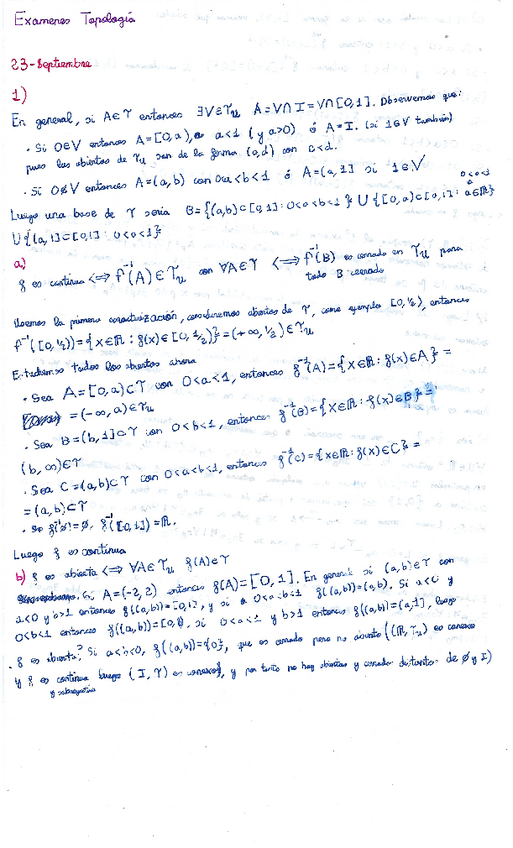 Examenes Topología
23-Septiembre
1)
En general, si A∈𝒯 entonces ∃V∈𝒯u A=V∩I=V∩[0,1]. Observemos que:
· Si 0∈V entonces A=[0,a), a<1 (y a>0) ó A=I. (si 1∈V también)
pues los abiertos de 𝒯u son de la forma (c,d) con c<d.
· Si 0∉V entonces A=(a,b) con 0<a<b<1 ó A=(a,1] si 1∈V
Luego una base de 𝒯 sería B={(a,b)⊂[0,1]: 0<a<b<1} ∪ {[0,a)⊂[0,1]: 0<a<1 a∈ℝ}
∪{(a,1]⊂[0,1]: 0<a<1}
a)
f es continua ⟺ f⁻¹(A)∈𝒯u con ∀A∈𝒯 ⟺ f⁻¹(B) es cerrado en 𝒯u para
todo B cerrado
Usemos la primera caracterización, consideremos abiertos de 𝒯, como ejemplo [0,½), entonces
f⁻¹([0,½))={x∈ℝ: f(x)∈[0,½)}=(+∞,½)∈𝒯u
Estudiemos todos los abiertos ahora
· Sea A=[0,a)⊂𝒯 con 0<a<1, entonces f⁻¹(A)={x∈ℝ: f(x)∈A}=
=(-∞,a)∈𝒯u
· Sea B=(b,1]⊂𝒯 con 0<b<1, entonces f⁻¹(B)={x∈ℝ: f(x)∈B}=
(b,∞)∈𝒯
· Sea C=(a,b)⊂𝒯 con 0<a<b<1, entonces f⁻¹(C)={x∈ℝ: f(x)∈C}=
=(a,b)⊂𝒯
· f⁻¹(∅)=∅, f⁻¹([0,1])=ℝ.
Luego f es continua
b) f es abierta ⟺ ∀A∈𝒯u f(A)∈𝒯
Si A=(-2,2) entonces f(A)=[0,1]. En general si (a,b)∈𝒯 con
a<0 y b>1 entonces f((a,b))=[0,1], y si 0<a<b<1 f((a,b))=(a,b). Si a<0 y
0<b<1 entonces f((a,b))=[0,b). Si 0<a<1 y b>1 entonces f((a,b))=(a,1], luego
· f es abierta? Si a<b<0, f((a,b))={0}, que es cerrado pero no abierto ((ℝ,𝒯u) es conexo
y f es continua luego (I,𝒯) es conexo, y por tanto no hay abiertos y cerrados distintos de ∅ y I)
y sobreyectiva